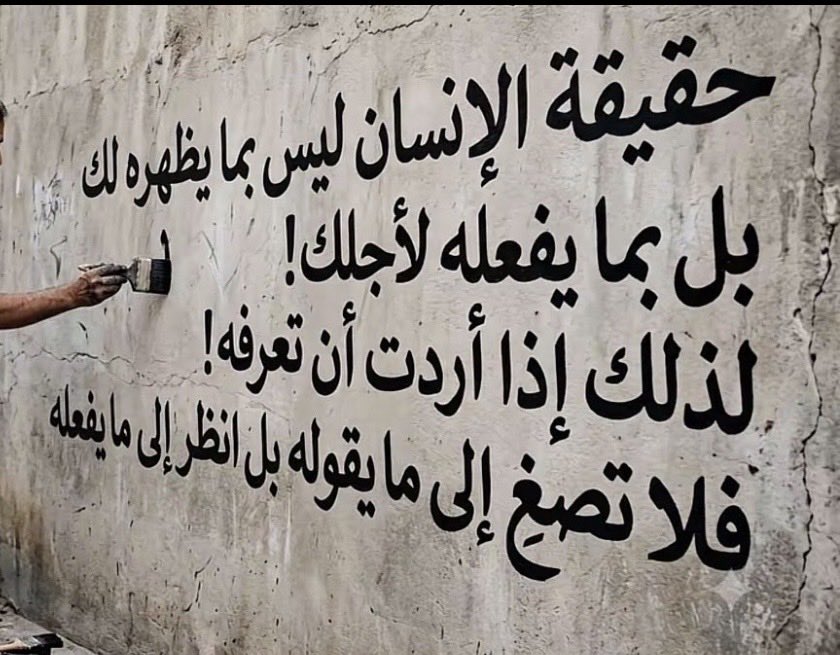 حقيقة الإنسان ليس بما يظهره لك
بل بما يفعله لأجلك!
لذلك إذا أردت أن تعرفه!
فلا تصغِ إلى ما يقوله بل انظر إلى ما يفعله